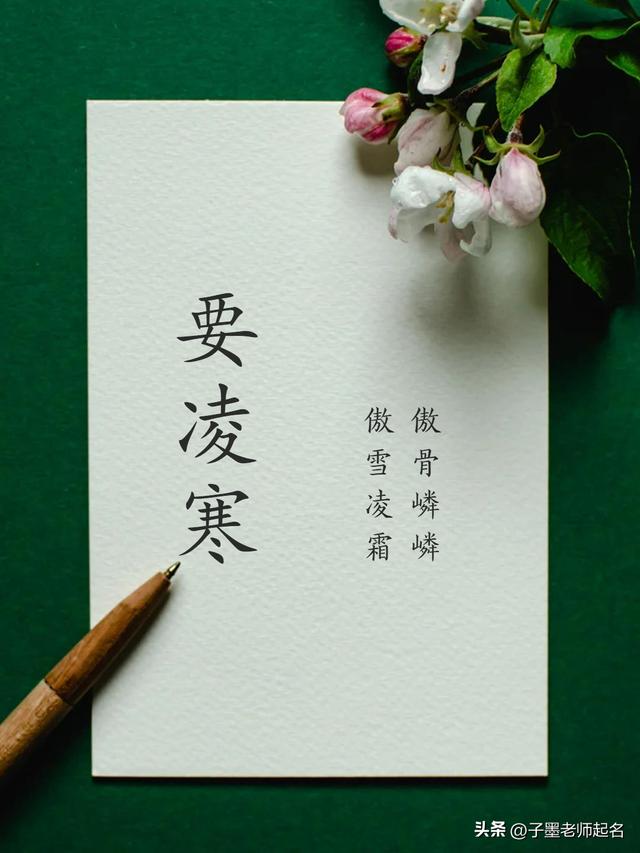 要凌寒
傲骨嶙嶙
傲雪凌霜
头条 @子墨老师起名